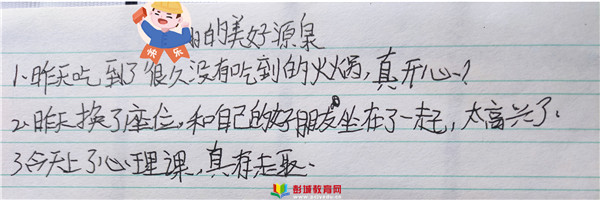 的美好源泉
1、昨天吃到了很久没有吃到的火锅,真开心~?
2、昨天换了座位,和自己的好朋友坐在了一起,太高兴了.
3今天上了心理课,真有走取.
彭城教育网